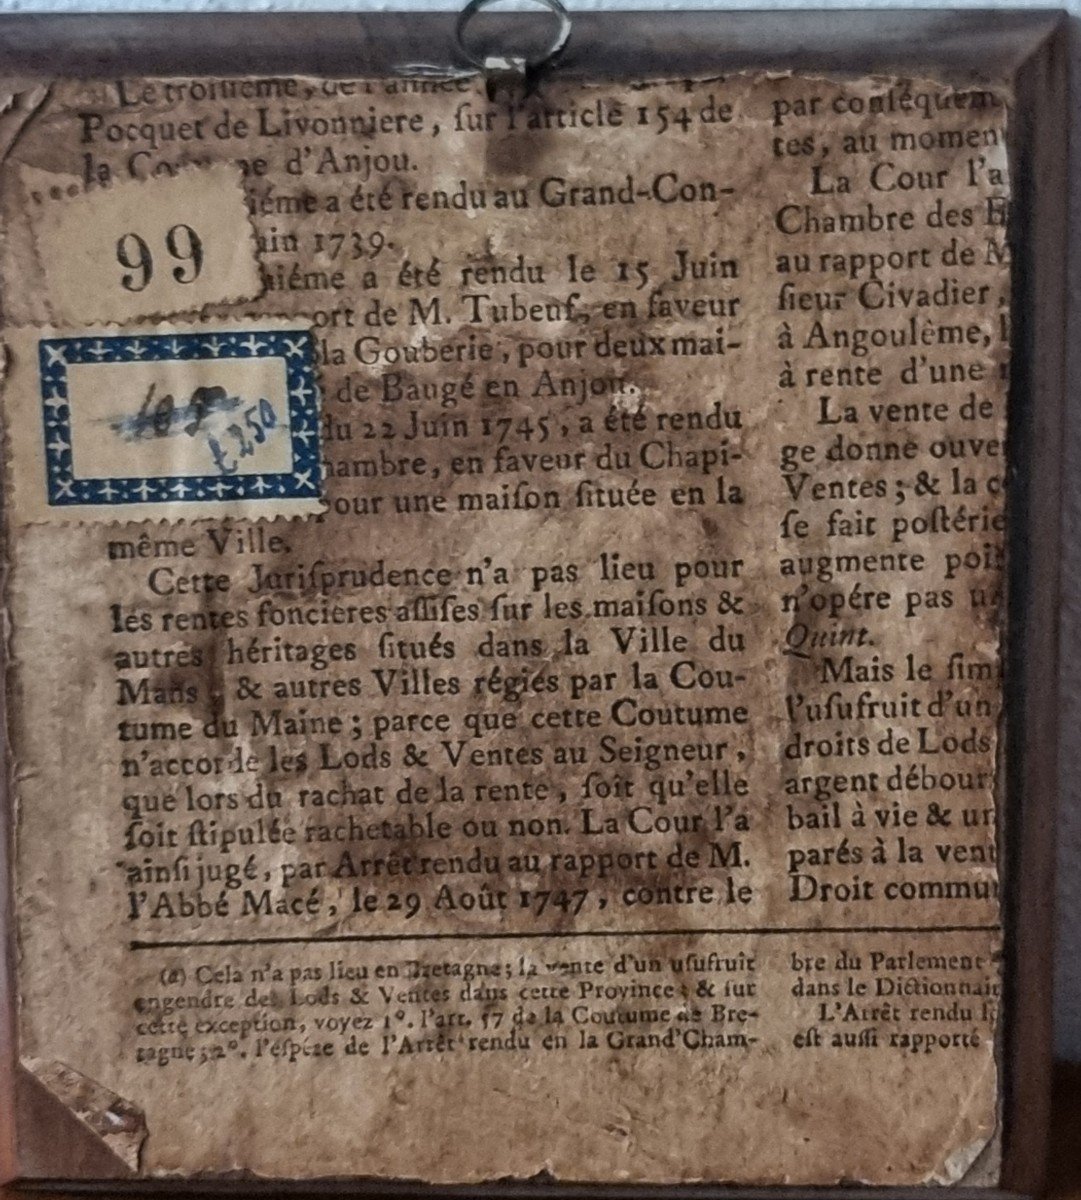 Le troisieme, de l'année
Pocquet de Livonniere, ſur l'article 154 de
la d'Anjou.
iéme a été rendu au Grand-Con-
uin 1739.
iéme a été rendu le 15 Juin
ort de M. Tubeuf, en faveur
la Gouberie, pour deux mai-
de Baugé en Anjou.
du 22 Juin 1745, a été rendu
hambre, en faveur du Chapi-
pour une maiſon ſituée en la
même Ville.
Cette Juriſprudence n'a pas lieu pour
les rentes foncieres aſſiſes ſur les maiſons &
autres héritages ſitués dans la Ville du
Mans, & autres Villes régies par la Cou-
tume du Maine; parce que cette Coutume
n'accorde les Lods & Ventes au Seigneur,
que lors du rachat de la rente, ſoit qu'elle
ſoit ſtipulée rachetable ou non. La Cour l'a
ainſi jugé, par Arrêt rendu au rapport de M.
l'Abbé Macé, le 29 Août 1747, contre le
(a) Cela n'a pas lieu en Bretagne; la vente d'un uſufruit
engendre des Lods & Ventes dans cette Province; & ſur
cette exception, voyez 1°. l'art. 57 de la Coutume de Bre-
tagne; 2°. l'eſpéce de l'Arrêt rendu en la Grand'Cham-
99
£250
par conſéquem
tes, au momen
La Cour l'a
Chambre des E
au rapport de M
ſieur Civadier,
à Angoulême, l
à rente d'une
La vente de
ge donne ouve
Ventes; & la c
ſe fait poſtérie
augmente poi
n'opére pas un
Quint.
Mais le ſim
l'uſufruit d'un
droits de Lods
argent débour
bail à vie & un
parés à la vent
Droit commu
bre du Parlement
dans le Dictionnair
L'Arrêt rendu l
eſt auſſi rapporté